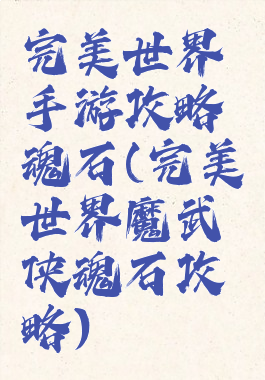 完美世界
手游攻略
魂石(完美
世界魔武
侠魂石攻
略)